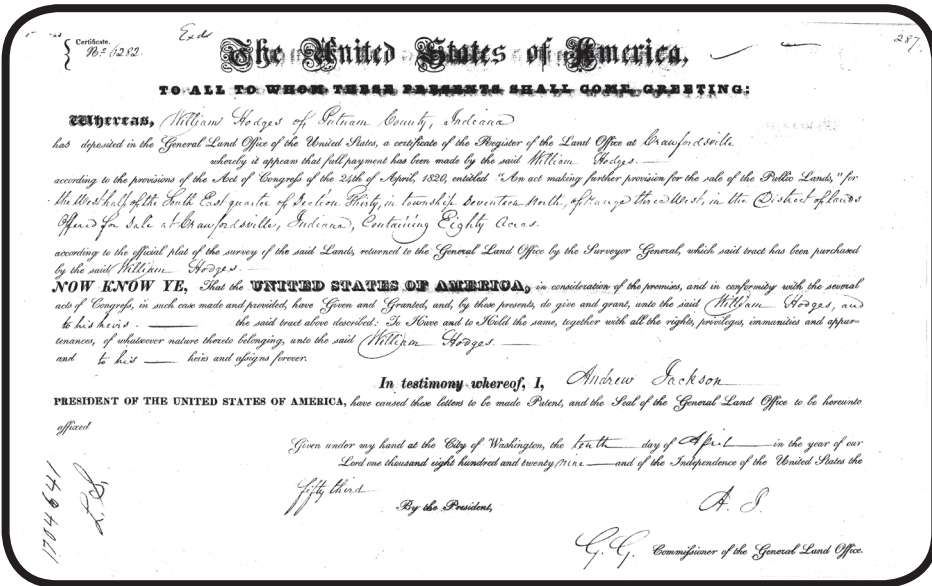 Certificate.
No. 6282.
Exd
287.
The United States of America,
TO ALL TO WHOM THESE PRESENTS SHALL COME, GREETING:
WHEREAS, William Hodges of Putnam County, Indiana
has deposited in the General Land Office of the United States, a certificate of the Register of the Land Office at Crawfordsville
whereby it appears that full payment has been made by the said William Hodges.
according to the provisions of the Act of Congress of the 24th of April, 1820, entitled "An act making further provision for the sale of the Public Lands," for
the West half of the South East quarter of Section Thirty, in Township Seventeen North, of Range three West, in the District of Lands
Offered for Sale at Crawfordsville, Indiana, Containing Eighty Acres.
according to the official plat of the survey of the said Lands, returned to the General Land Office by the Surveyor General, which said tract has been purchased
by the said William Hodges.
NOW KNOW YE, That the UNITED STATES OF AMERICA, in consideration of the premises, and in conformity with the several
acts of Congress, in such case made and provided, have Given and Granted, and, by these presents, do give and grant, unto the said William Hodges, and
to his heirs. the said tract above described: To Have and to Hold the same, together with all the rights, privileges, immunities and appur-
tenances, of whatsoever nature thereto belonging, unto the said William Hodges.
and to his heirs and assigns forever.
In testimony whereof, I, Andrew Jackson
PRESIDENT OF THE UNITED STATES OF AMERICA, have caused these letters to be made Patent, and the Seal of the General Land Office to be hereunto
affixed
Given under my hand at the City of Washington, the tenth day of April in the year of our
Lord one thousand eight hundred and twenty nine and of the Independence of the United States the
fifty third
By the President, A. J.
G. G. Commissioner of the General Land Office.
L. S.